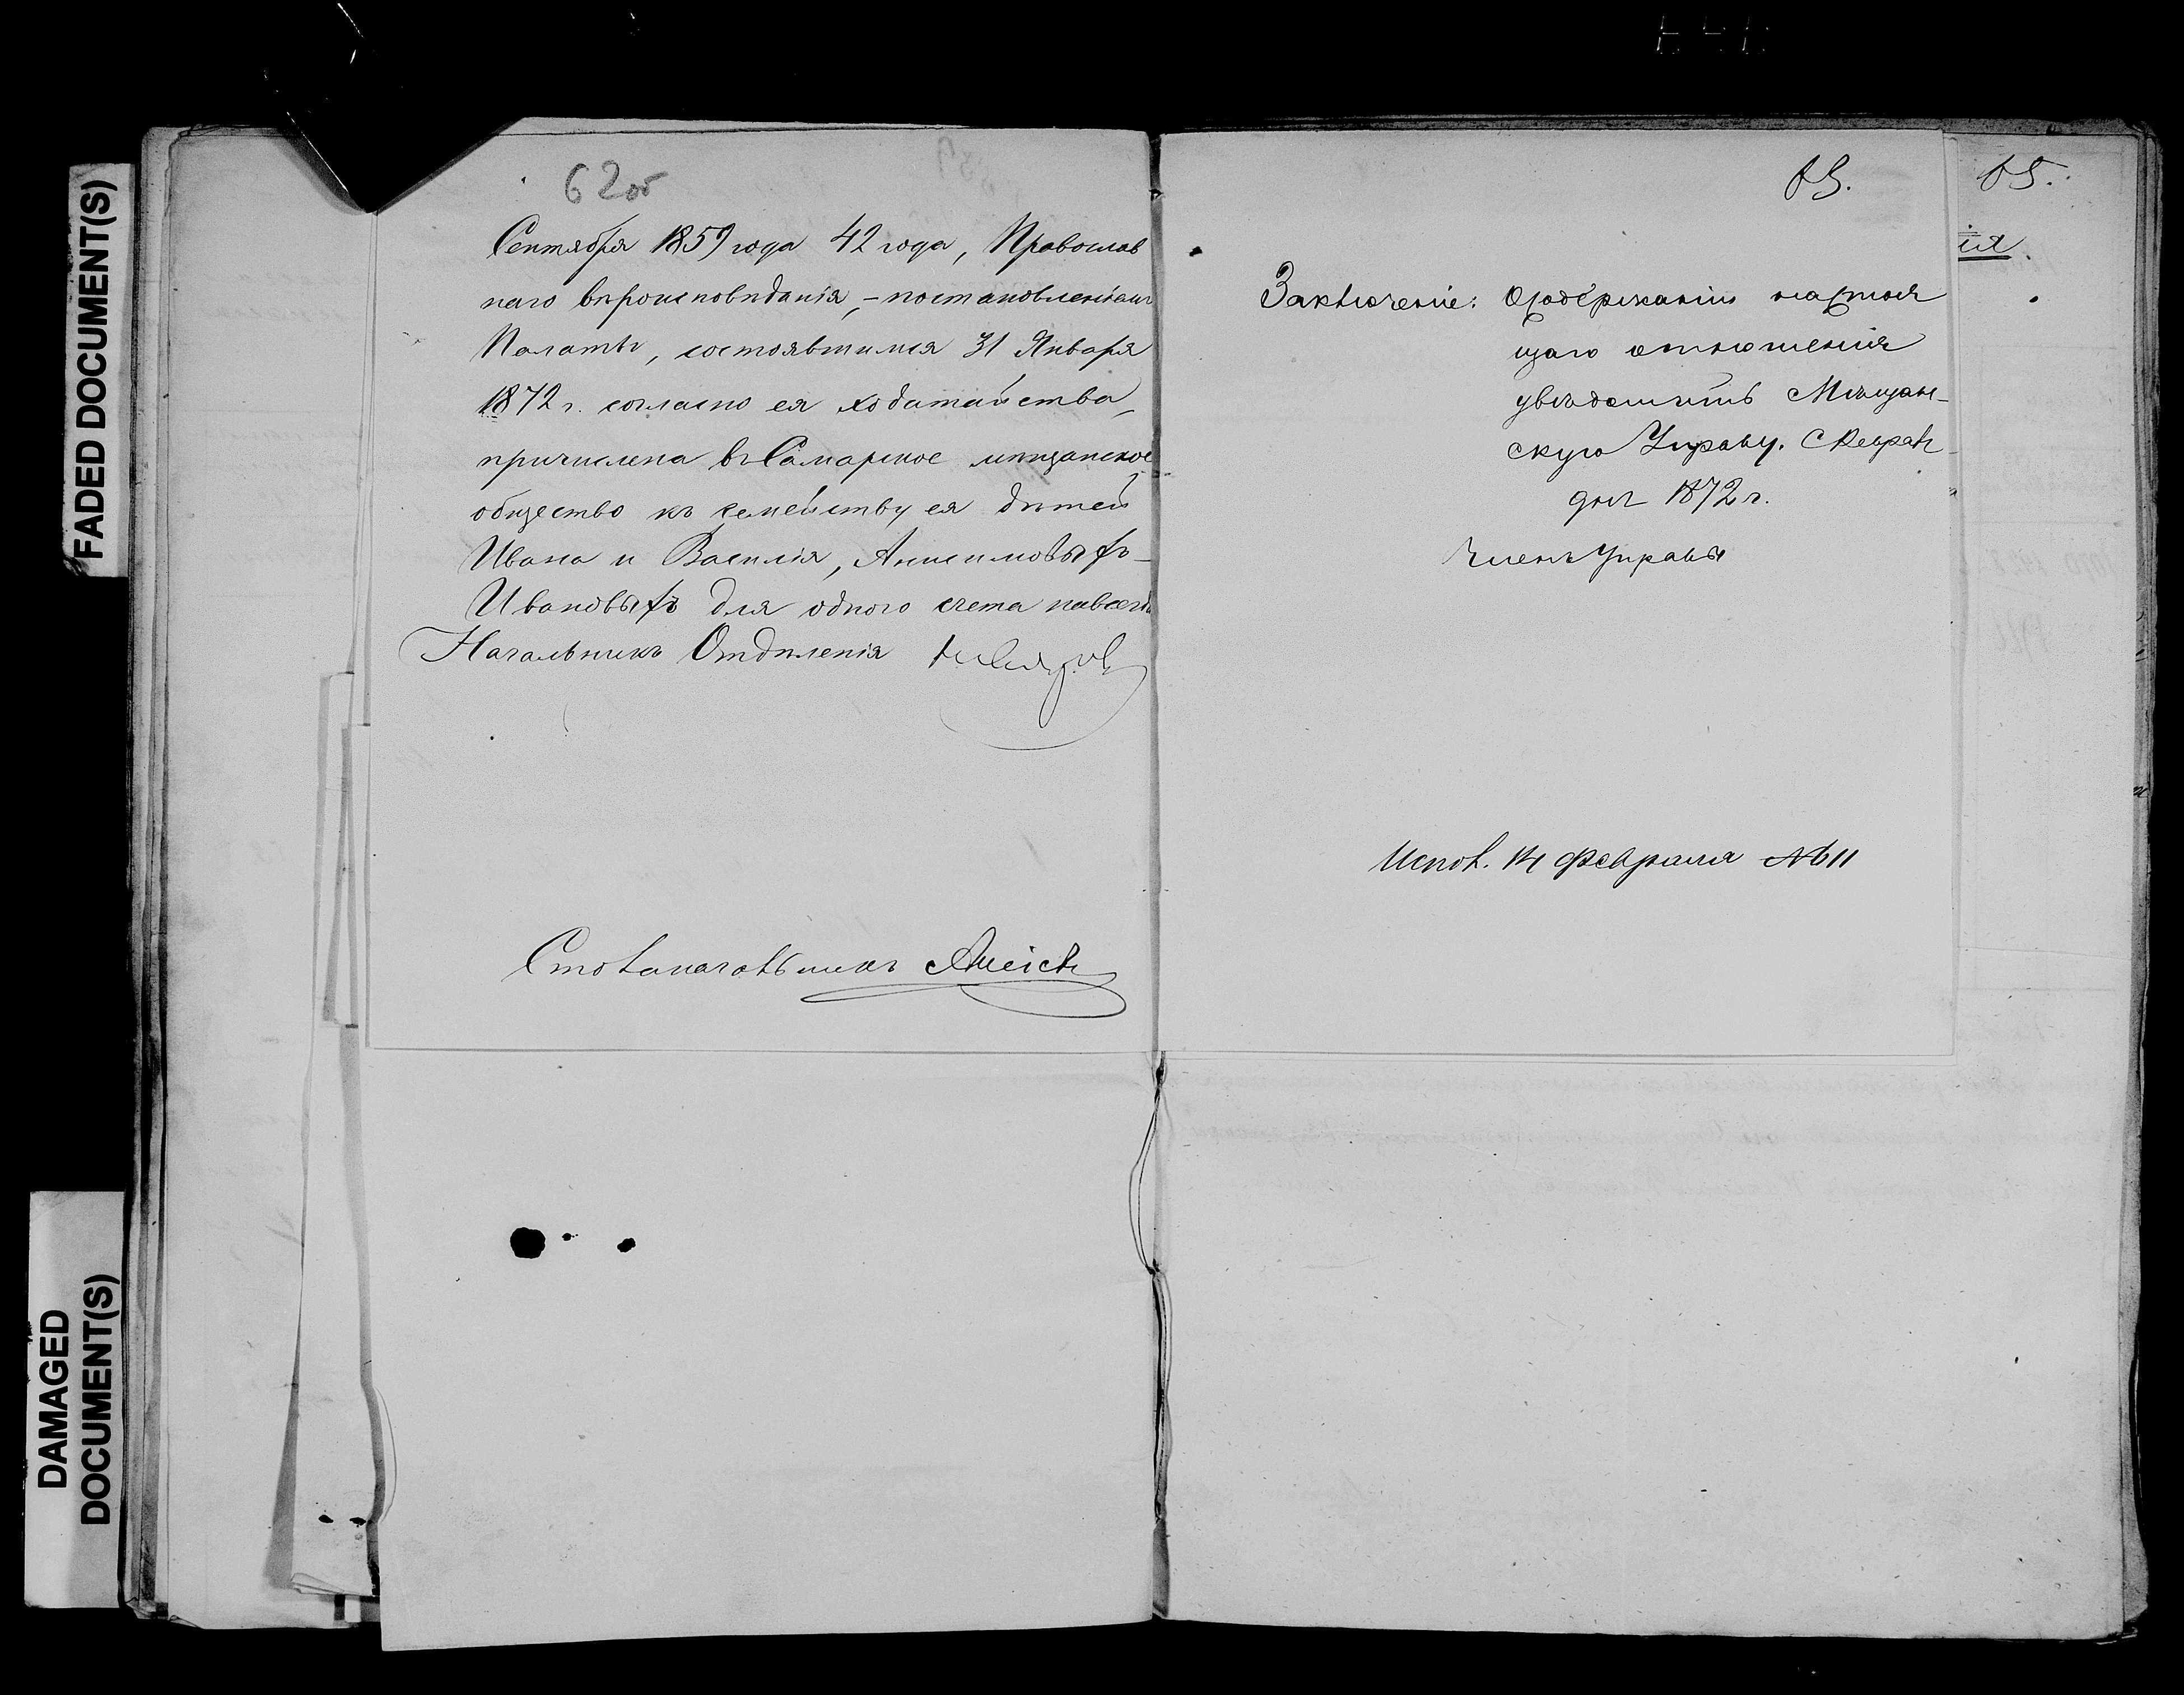 62 об
Сентября 1859 года 42 года, Православ
наго вѣроисповѣданія, – постановленіем
Палаты, состоявшимся 31 Января
1872 г. согласно ея ходатайства,
причислена въ Самарское мѣщанское
общество къ семейству ея дѣтей
Ивана и Василія, Анисимовыхъ –
Ивановыхъ для одного счета навсегда
Начальникъ Отдѣленія
Столоначальникъ
63. 65.
ія
Заключеніе: О содержаніи настоя
щаго отношенія
увѣдомить Мѣщан-
скую Управу. Феврал
дня 1872 г.
Членъ Управы
Испол. 14 Февраля № 11
FADED DOCUMENT(S)
DAMAGED
DOCUMENT(S)